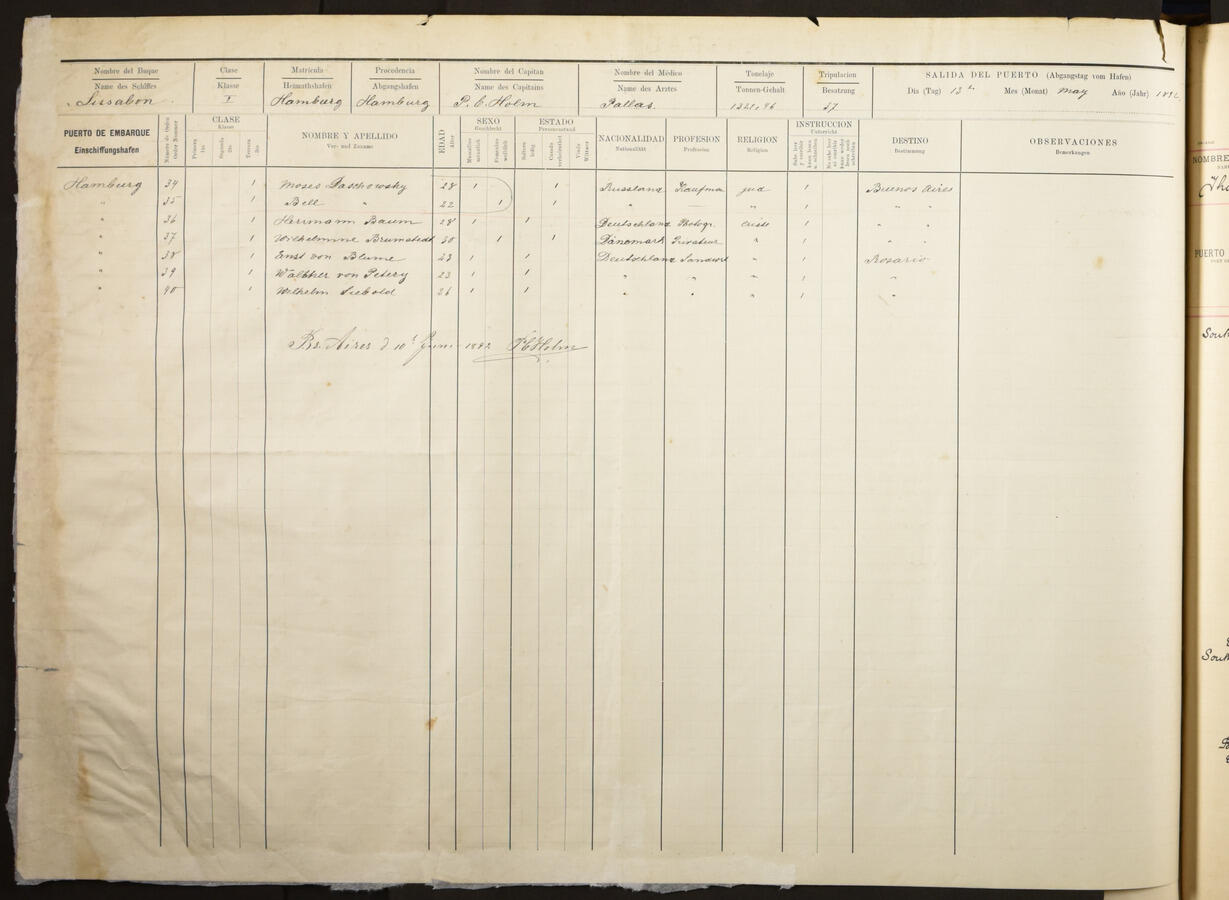 Nombre del Buque Clase Matrícula Procedencia Nombre del Capitan Nombre del Médico Tonelaje Tripulacion SALIDA DEL PUERTO (Abgangstag vom Hafen)
Name des Schiffes Klasse Heimathshafen Abgangshafen Name des Capitains Name des Arztes Tonnen-Gehalt Besatzung Dia (Tag) 13 Mes (Monat) May Año (Jahr) 1892
Lissabon I Hamburg Hamburg P. C. Holm Pallas. 37
PUERTO DE EMBARQUE
Einschiffungshafen
Número de Orden
Order Nummer
CLASE
Klasse
Primera
Segunda
Tercera
NOMBRE Y APELLIDO
Vor- und Zuname
EDAD
Alter
SEXO
Geschlecht
Masculino
männlich
Femenino
weiblich
ESTADO
Personenstand
Soltero
ledig
Casado
verheirathet
Viudo
Wittwer
NACIONALIDAD
Nationalität
PROFESION
Profession
RELIGION
Religion
INSTRUCCION
Unterricht
DESTINO
Bestimmung
OBSERVACIONES
Bemerkungen
Hamburg 34 1 Moses Paschowsky 28 1 1 Russland Kaufma jud 1 Buenos Aires
" 35 1 Bell " 22 1 1 " " 1 " "
" 36 1 Herrmann Baum 28 1 1 Deutschland Photogr. 1 " "
" 37 1 Wilhelmine Brumstedt 30 1 1 Dänemark " 1 " "
" 38 1 Ernst von Blume 23 1 1 Deutschland Landwirt " 1 Rosario
" 39 1 Walther von Petery 23 1 1 " " " 1 "
" 40 1 Wilhelm Siebold 26 1 1 " " " 1 "
Bs. Aires d 10t Juni 1892 P C Holm
NOMBRE
PUERTO
South
South